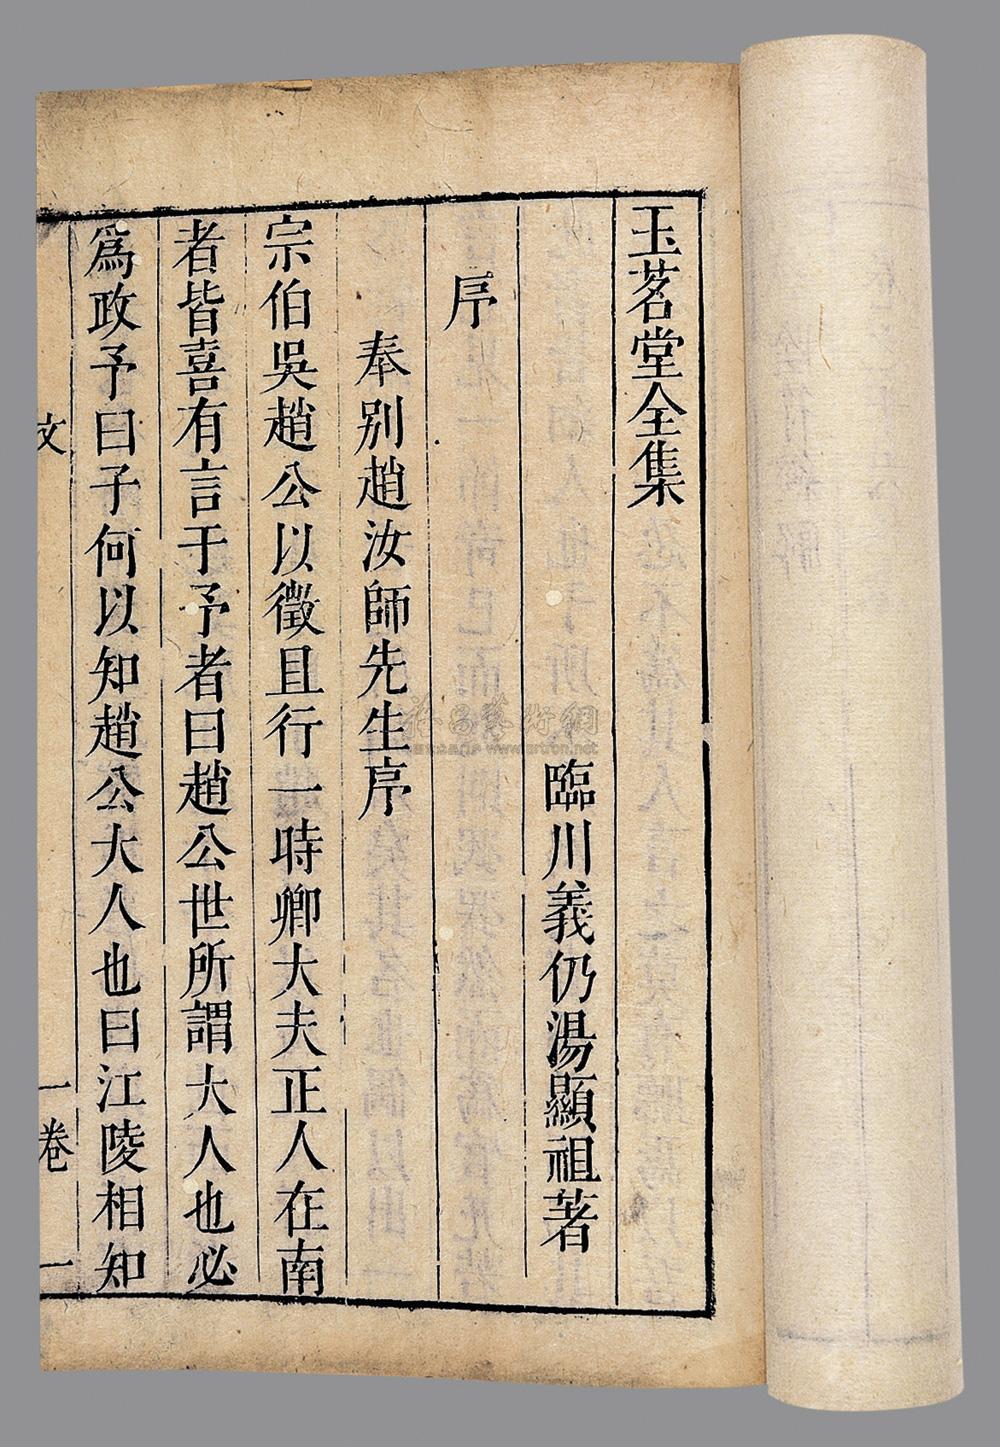 玉茗堂全集
臨川義仍湯顯祖著
序
奉別趙汝師先生序
宗伯吳趙公以徵且行一時卿大夫正人在南
者皆喜有言于予者曰趙公世所謂大人也必
為政予曰子何以知趙公大人也曰江陵相知
文
一卷
一
www.artron.net